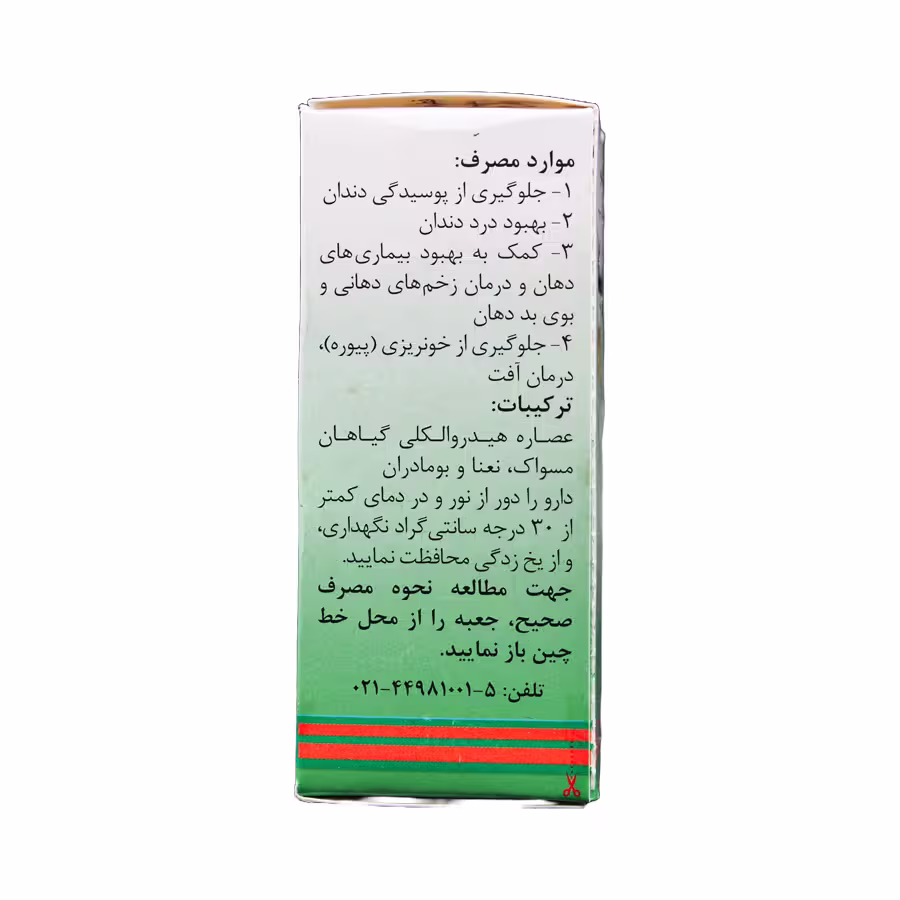 موارد مصرف:
۱- جلوگیری از پوسیدگی دندان
۲- بهبود درد دندان
۳- کمک به بهبود بیماری‌های
دهان و درمان زخم‌های دهانی و
بوی بد دهان
۴- جلوگیری از خونریزی (پیوره)،
درمان آفت
ترکیبات:
عصاره هیدروالکلی گیاهان
مسواک، نعنا و بومادران
دارو را دور از نور و در دمای کمتر
از ۳۰ درجه سانتی‌گراد نگهداری،
و از یخ زدگی محافظت نمایید.
جهت مطالعه نحوه مصرف
صحیح، جعبه را از محل خط
چین باز نمایید.
تلفن: ۵-۴۴۹۸۱۰۰۱-۰۲۱